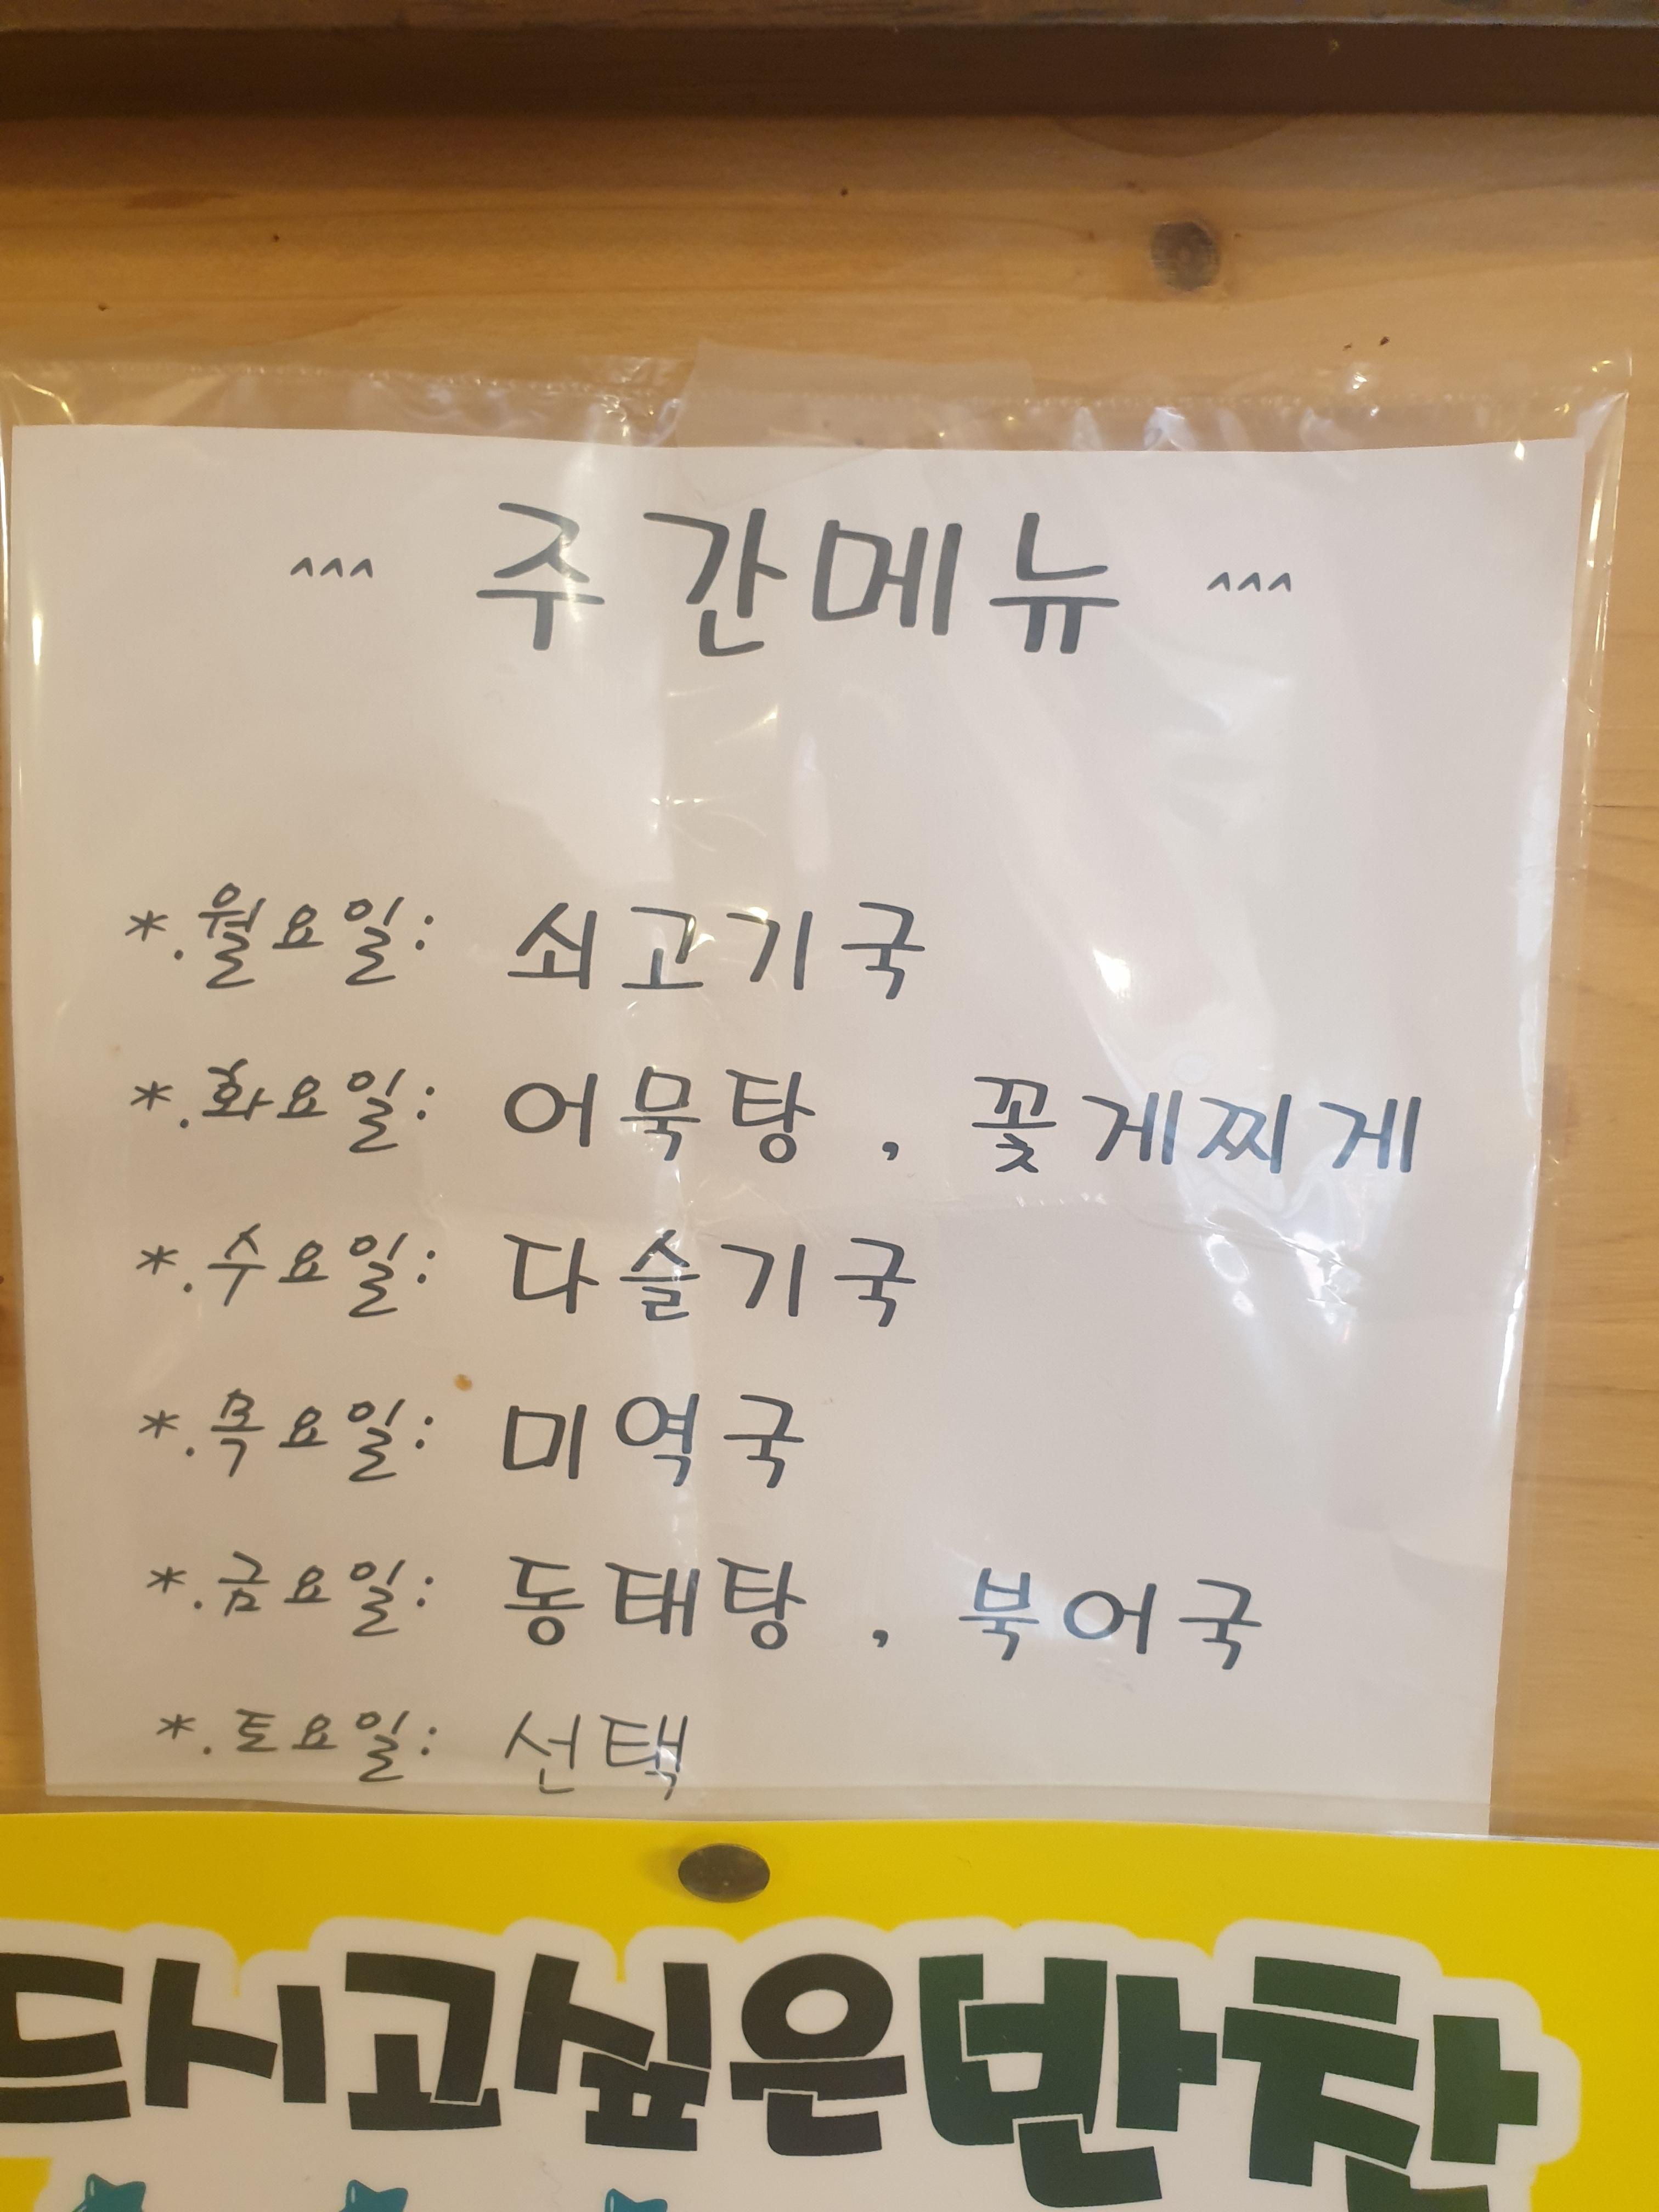 ^^^ 주간메뉴 ^^^
*.월요일: 쇠고기국
*.화요일: 어묵탕 , 꽃게찌게
*.수요일: 다슬기국
*.목요일: 미역국
*.금요일: 동태탕 , 북어국
*.토요일: 선택
드시고싶은반찬